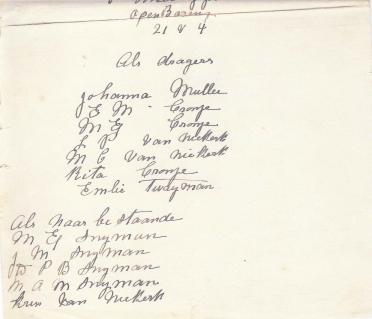 Open Baring
21 v 4
Als dragers
Johanna Muller
E M Cronje
M E Cronje
S P van Niekerk
M C van Niekerk
Rita Cronje
Emlie Twyman
Als naar be staande
M E Snyman
J M Snyman
D P B Snyman
M A M Snyman
van Niekerk